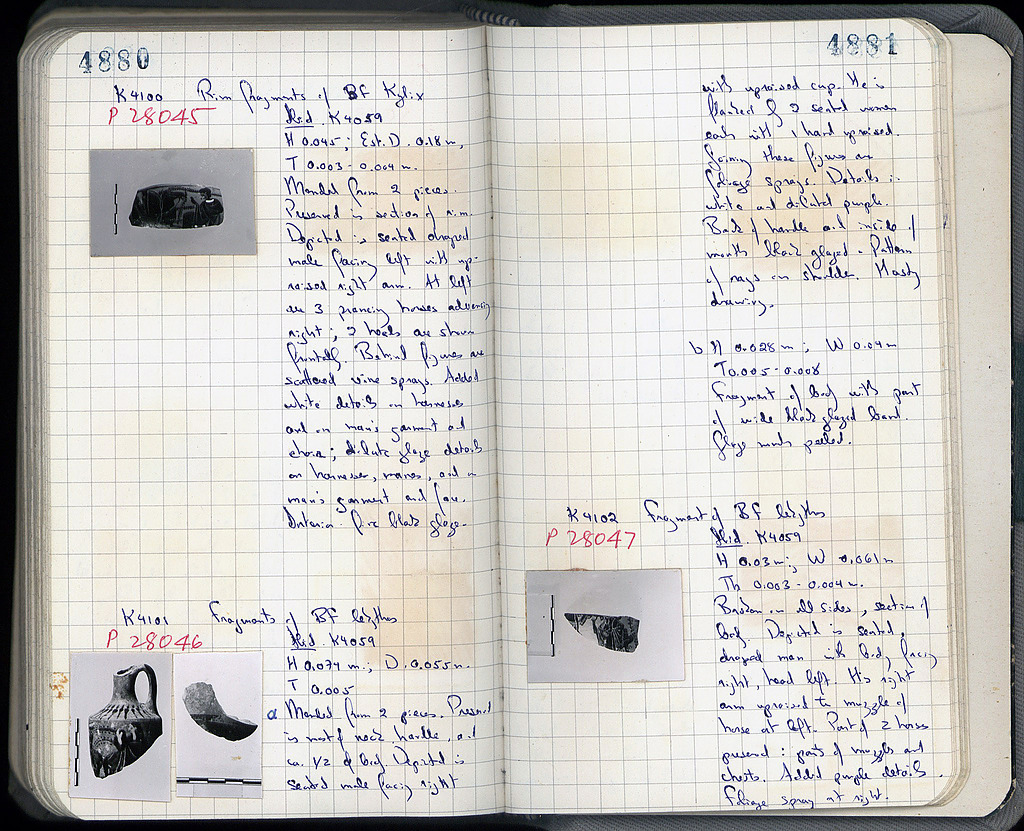 4880
K4100 Rim fragments of BF Kylix
P 28045
Ibid. K4059
H 0.045; Est. D. 0.18 m,
T 0.003 - 0.004 m.
Mended from 2 pieces.
Preserved is section of rim.
Depicted is seated draped
male facing left with up-
raised right arm. At left
are 3 prancing horses advancing
right; 2 heads are shown
frontally. Behind figures are
scattered vine sprays. Added
white details on harnesses
and on man's garment and
chair; dilute glaze details
on harnesses, manes, and on
man's garment and face.
Interior. Fine black glaze.
K4101 Fragments of BF lekythos
P 28046
Ibid. K4059
H 0.074 m.; D. 0.055 m.
T 0.005
a Mended from 2 pieces. Preserved
is most of neck, handle, and
ca. 1/2 of body. Depicted is
seated male facing right
4881
with upraised cup. He is
flanked by 2 seated women
each with 1 hand upraised.
Joining these figures are
foliage sprays. Details in
white and diluted purple.
Back of handle and inside of
mouth black glazed. Pattern
of rays on shoulder. Hasty
drawing.
b H 0.028 m; W 0.04 m
T 0.005 - 0.008
Fragment of body with part
of wide black glazed band.
Glaze much peeled.
K4102 Fragment of BF lekythos
P 28047
Ibid. K4059
H 0.03 m; W 0.061 m
Th 0.003 - 0.004 m.
Broken on all sides, section of
body. Depicted is seated,
draped man with body facing
right, head left. His right
arm upraised to muzzle of
horse at left. Part of 2 horses
preserved: parts of muzzles and
chests. Added purple details.
Foliage spray at right.